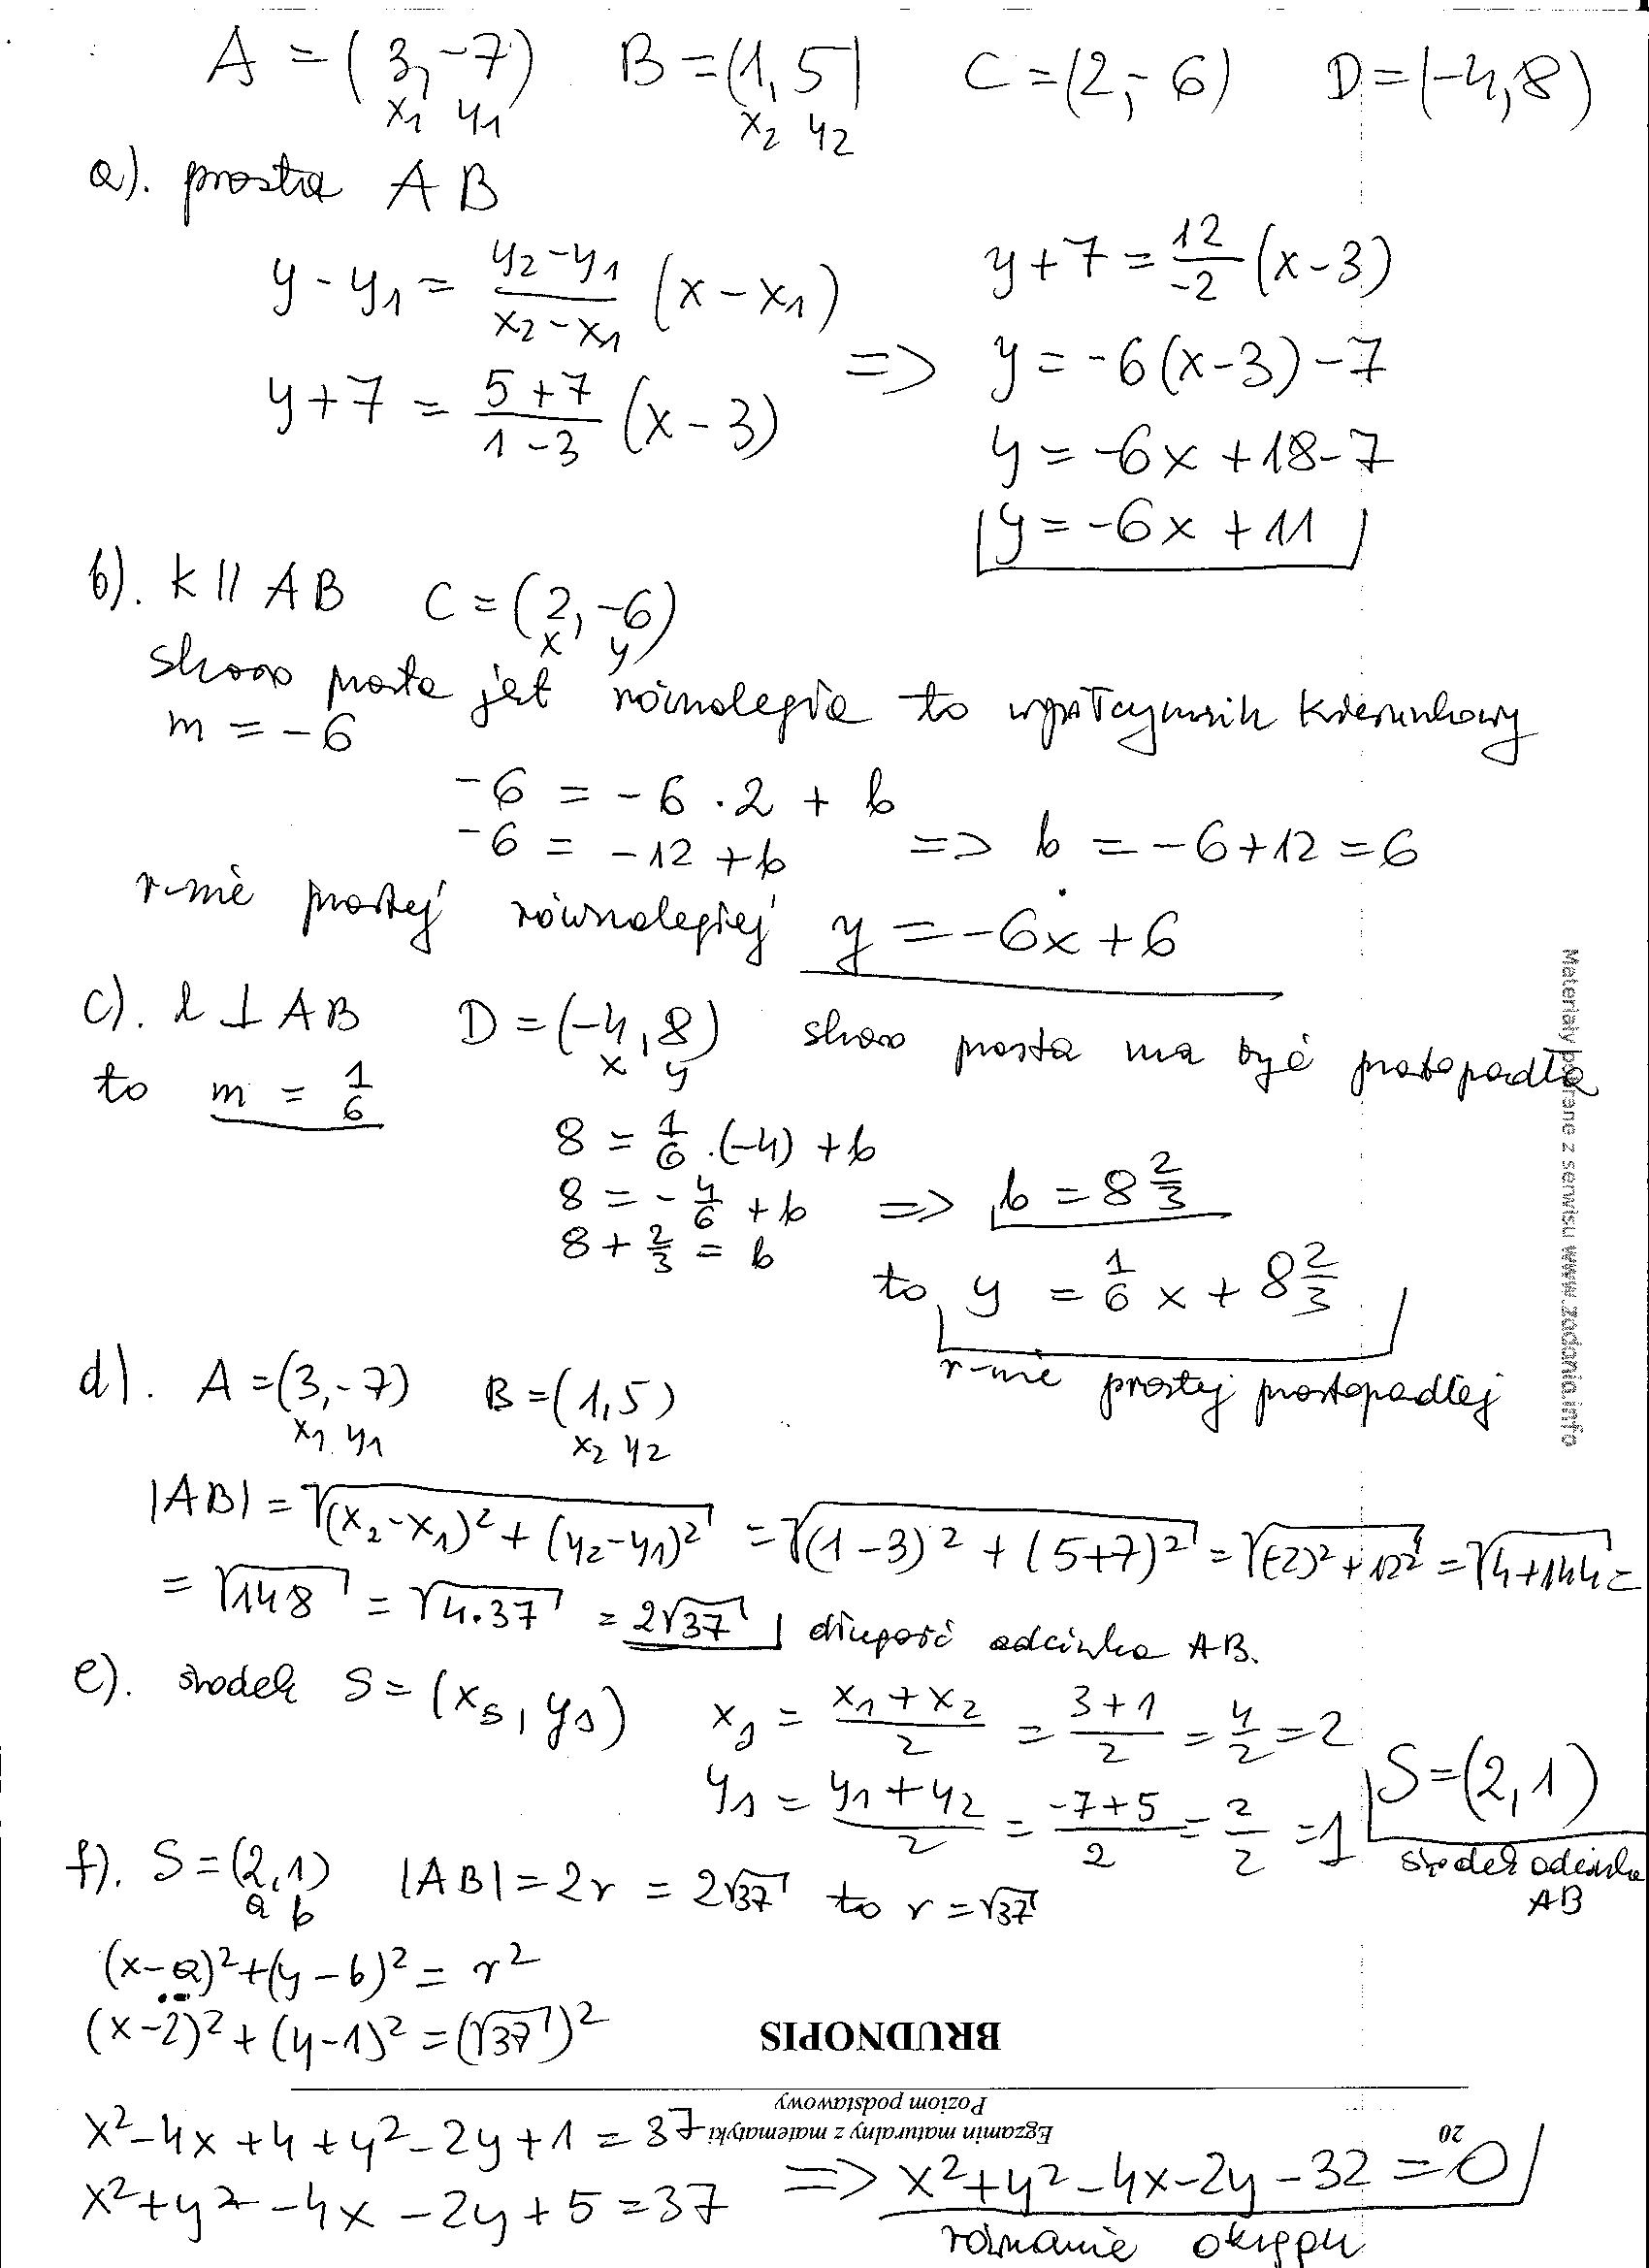 A = (3, -7) B = (1, 5) C = (2, -6) D = (-4, 8)
x₁ y₁ x₂ y₂
a). prosta AB
y - y₁ = \frac{y₂ - y₁}{x₂ - x₁} (x - x₁)
y + 7 = \frac{5 + 7}{1 - 3} (x - 3)
=> y + 7 = \frac{12}{-2} (x - 3)
y = -6(x - 3) - 7
y = -6x + 18 - 7
y = -6x + 11
b). k || AB C = (2, -6)
x y
skoro prosta jest równoległa to współczynnik kierunkowy
m = -6
-6 = -6 · 2 + b
-6 = -12 + b => b = -6 + 12 = 6
r-nie prostej równoległej y = -6x + 6
c). l ⊥ AB D = (-4, 8) skoro prosta ma być prostopadła
x y
to m = \frac{1}{6}
8 = \frac{1}{6} · (-4) + b
8 = -\frac{4}{6} + b => b = 8\frac{2}{3}
8 + \frac{2}{3} = b
to y = \frac{1}{6} x + 8\frac{2}{3}
r-nie prostej prostopadłej
d). A = (3, -7) B = (1, 5)
x₁ y₁ x₂ y₂
|AB| = √((x₂ - x₁)² + (y₂ - y₁)²) = √((1 - 3)² + (5 + 7)²) = √((-2)² + 12²) = √(4 + 144) =
= √148 = √(4·37) = 2√37 długość odcinka AB.
e). środek S = (x_s, y_s) x_s = \frac{x₁ + x₂}{2} = \frac{3 + 1}{2} = \frac{4}{2} = 2
y_s = \frac{y₁ + y₂}{2} = \frac{-7 + 5}{2} = \frac{2}{2} = 1
S = (2, 1)
środek odcinka
AB
f). S = (2, 1) |AB| = 2r = 2√37 to r = √37
a b
(x - a)² + (y - b)² = r²
(x - 2)² + (y - 1)² = (√37)²
BRUDNOPIS
Poziom podstawowy
Egzamin maturalny z matematyki
20
x² - 4x + 4 + y² - 2y + 1 = 37
x² + y² - 4x - 2y + 5 = 37 => x² + y² - 4x - 2y - 32 = 0
równanie okręgu
Materiały pobrane z serwisu www.zadania.info